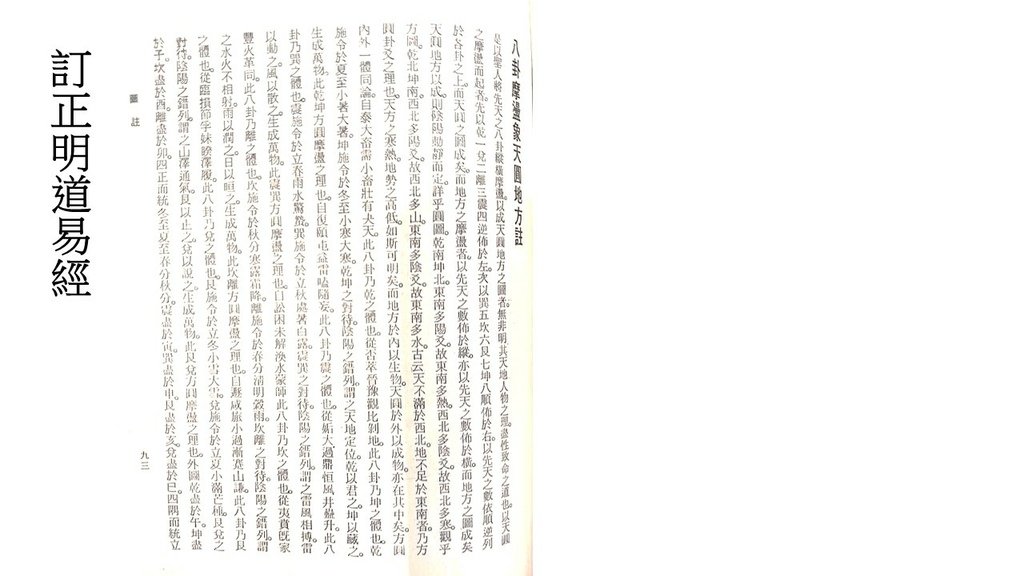 訂正明道易經
八卦摩盪象天圓地方註
是以聖人將先天之八卦縱橫摩盪。以成天圓地方之圖者。無非明其天地人物之理。盡性致命之道也。以天圓
之摩盪而起者。先以乾一兌二離三震四逆佈於左。次以巽五坎六艮七坤八順佈於右。以先天之數依順逆列
於各卦之上。而天圓之圖成矣。而地方之摩盪者。以先天之數佈於縱。亦以先天之數佈於橫。而地方之圖成矣
天圓地方以成。則陰陽動靜而定。詳乎圓圖。乾南坤北。東南多陽爻。故東南多熱。西北多陰爻。故西北多寒。觀乎
方圖。乾北坤南。西北多陽爻。故西北多山。東南多陰爻。故東南多水。古云天不滿於西北。地不足於東南者。乃方
圓卦爻之理也。天方之寒熱。地勢之高低。如斯可明矣。而地方於內以生物。天圓於外以成物。亦在其中矣。方圓
內外一體同論。自泰大畜需小畜壯有夬天。此八卦乃乾之體也。從否萃晉豫觀比剝地。此八卦乃坤之體也。乾
施令於夏至小暑大暑。坤施令於冬至小寒大寒。乾坤之對待。陰陽之錯列。謂之天地定位。乾以君之。坤以藏之。
生成萬物。此乾坤方圓摩盪之理也。自復頤屯益雷嗑隨妄。此八卦乃震之體也。從姤大過鼎恒風井蠱升。此八
卦乃巽之體也。震施令於立春雨水驚蟄。巽施令於立秋處暑白露。震巽之對待。陰陽之錯列。謂之雷風相搏。雷
以動之。風以散之。生成萬物。此震巽方圓摩盪之理也。自訟困未解渙水蒙師。此八卦乃坎之體也。從夷賁既家
豐火革同。此八卦乃離之體也。坎施令於秋分寒露霜降。離施令於春分清明穀雨。坎離之對待。陰陽之錯列。謂
之水火不相射。雨以潤之。日以晅之。生成萬物。此坎離方圓摩盪之理也。自遯咸旅小過漸蹇山謙。此八卦乃艮
之體也。從臨損節孚妹睽澤履。此八卦乃兌之體也。艮施令於立冬小雪大雪。兌施令於立夏小滿芒種。艮兌之
對待。陰陽之錯列。謂之山澤通氣。艮以止之。兌以說之。生成萬物。此艮兌方圓摩盪之理也。外圖乾盡於午。坤盡
於子。坎盡於酉。離盡於卯。四正而統冬至夏至春分秋分。震盡於寅。巽盡於申。艮盡於亥。兌盡於巳。四隅而統立
圖註
九三